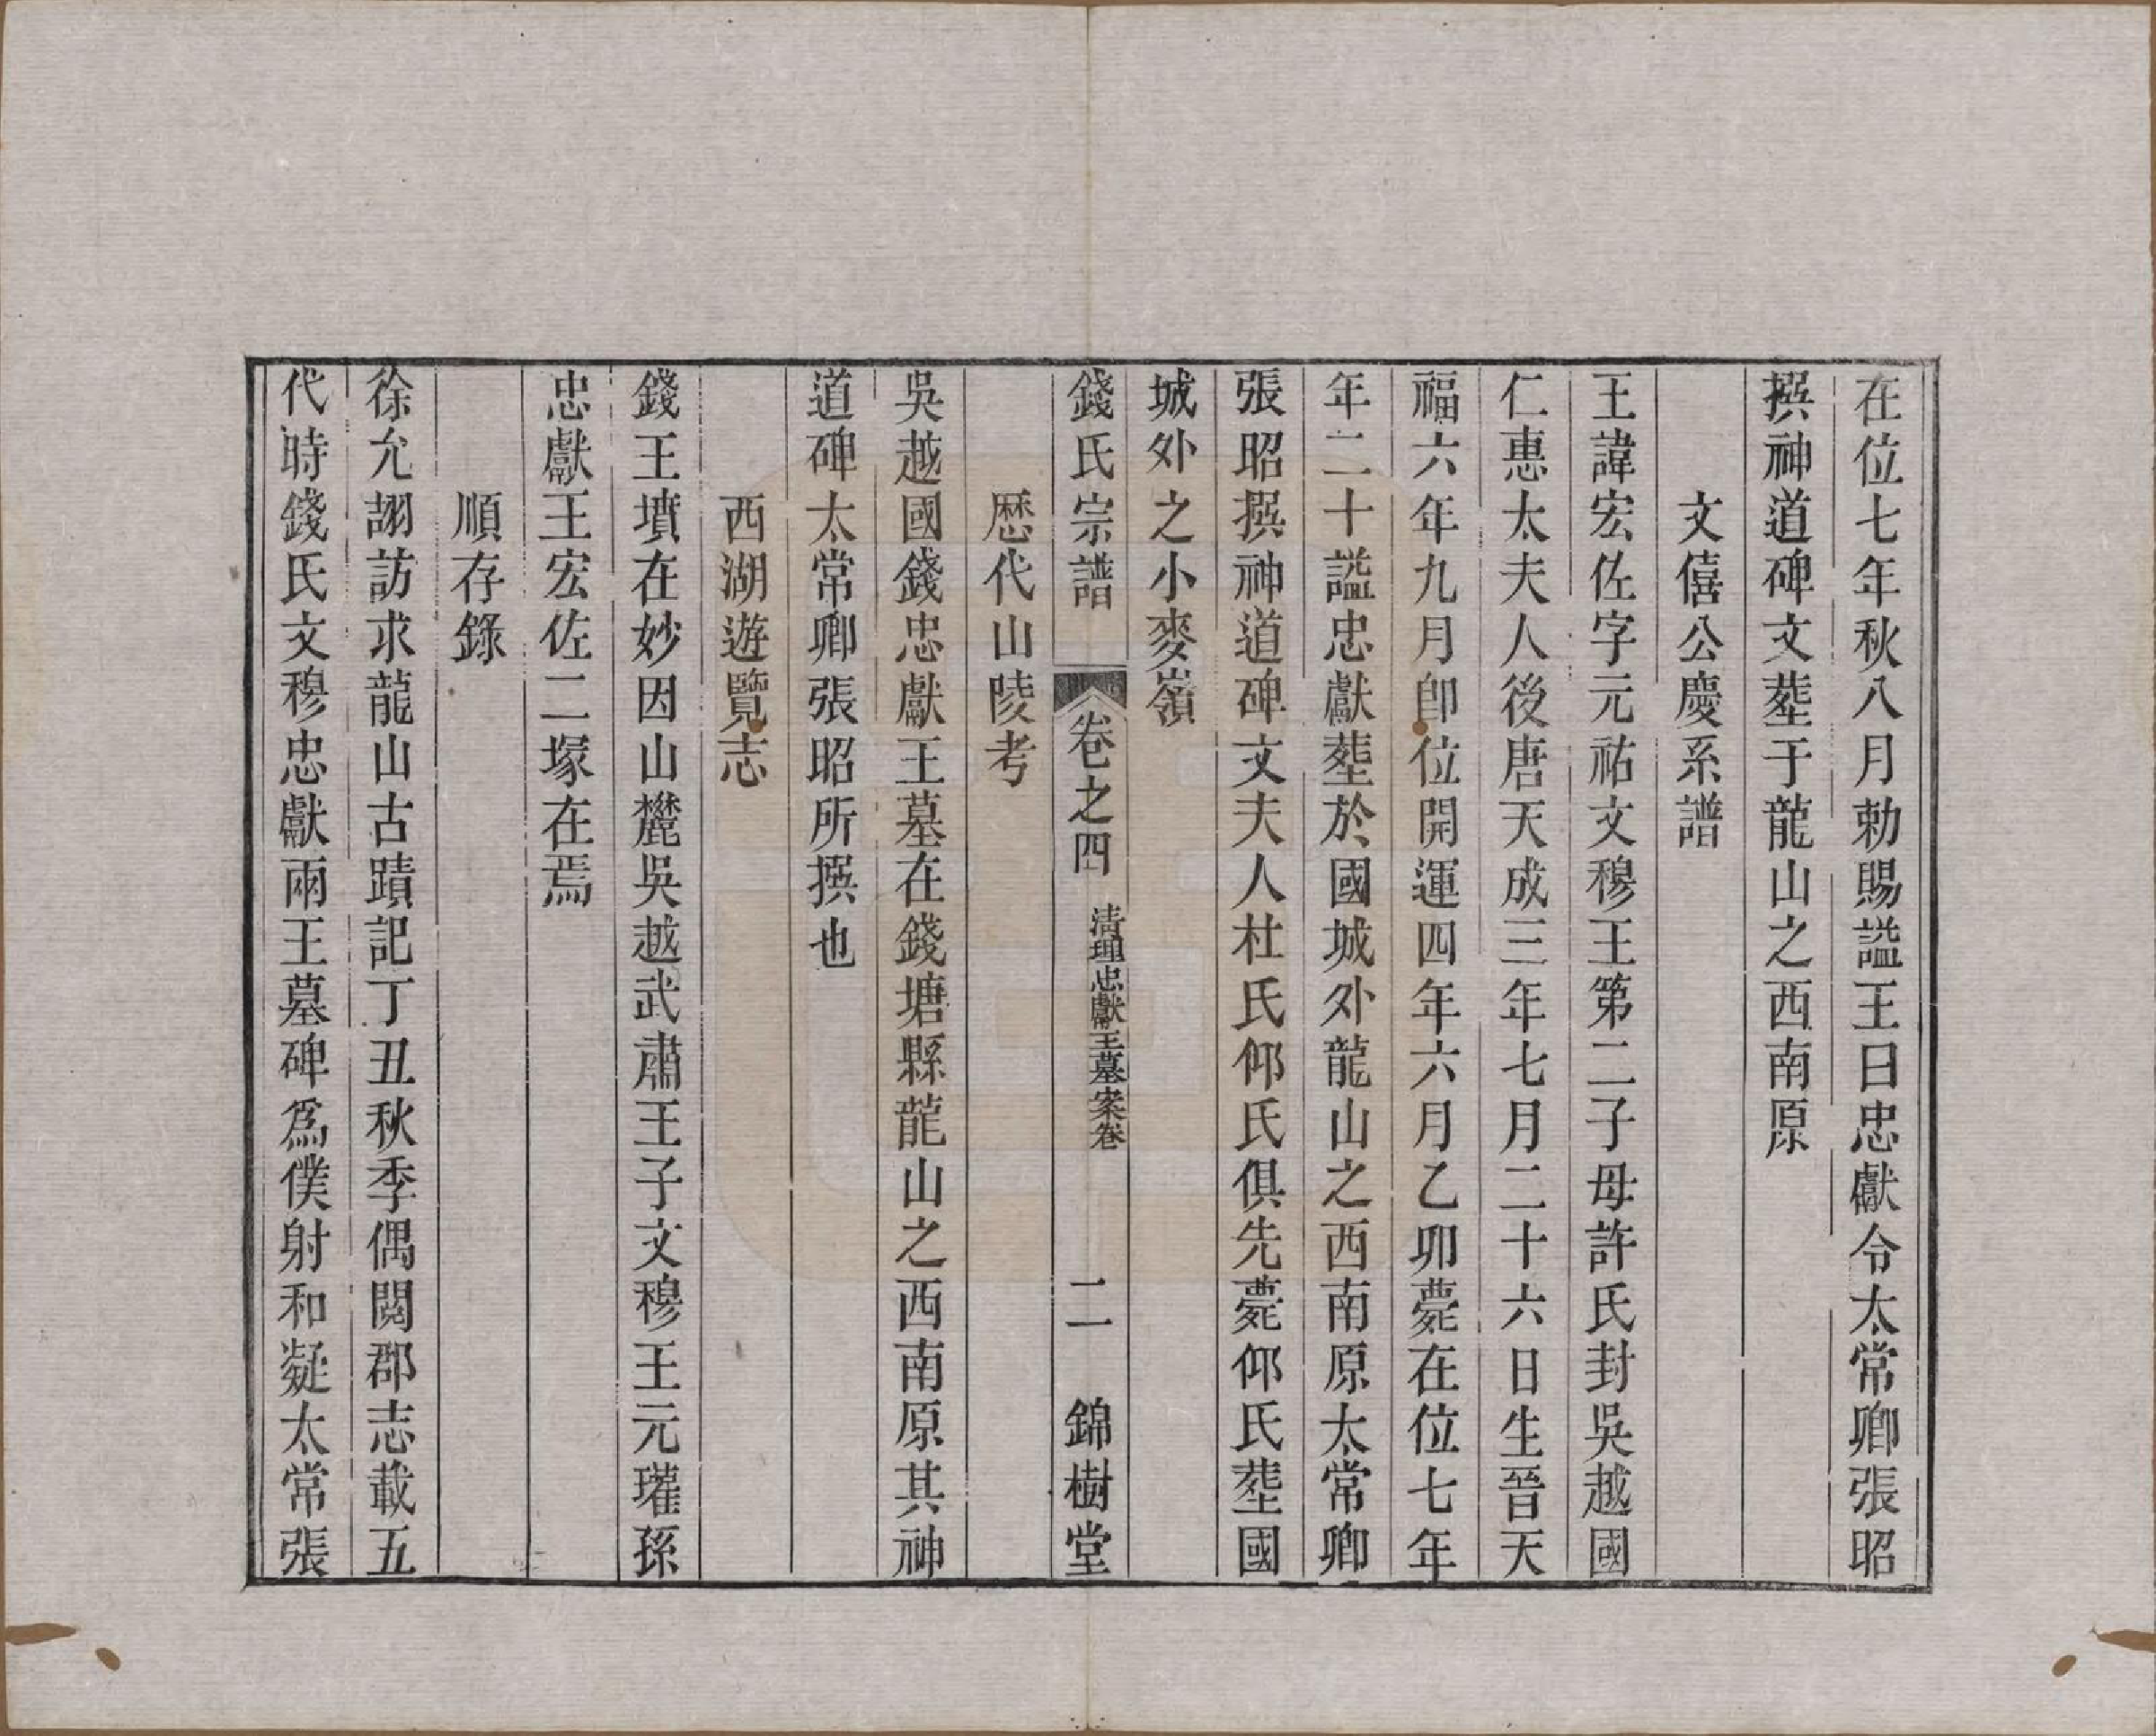 在位七年秋八月勅賜諡王曰忠獻令太常卿張昭
撰神道碑文塟于龍山之西南原
文僖公慶系譜
王諱宏佐字元祐文穆王第二子母許氏封吳越國
仁惠太夫人後唐天成三年七月二十六日生晉天
福六年九月卽位開運四年六月乙卯薨在位七年
年二十諡忠獻塟於國城外龍山之西南原太常卿
張昭撰神道碑文夫人杜氏仰氏俱先薨仰氏塟國
城外之小麥嶺
錢氏宗譜 卷之四 清理忠獻王墓案卷 二 錦樹堂
歷代山陵考
吳越國錢忠獻王墓在錢塘縣龍山之西南原其神
道碑太常卿張昭所撰也
西湖遊覽志
錢王墳在妙因山麓吳越武肅王子文穆王元瓘孫
忠獻王宏佐二塚在焉
順存錄
徐允翃訪求龍山古蹟記丁丑秋季偶閱郡志載五
代時錢氏文穆忠獻兩王墓碑爲僕射和凝太常張